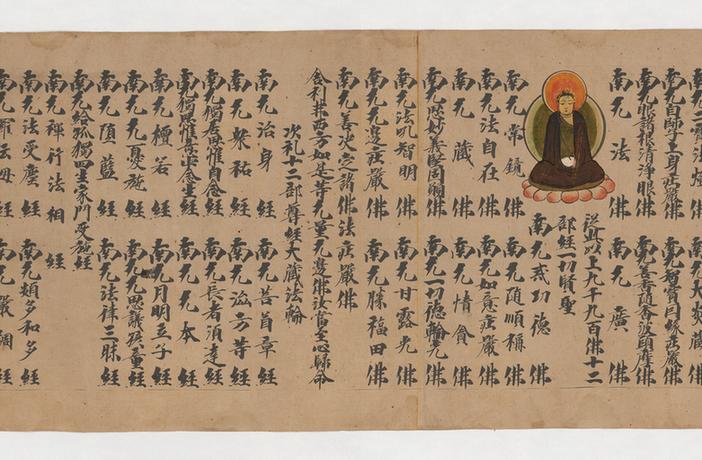 南无二寶法燈佛　南无大炎藏佛
南无眼諸根清淨眼佛
南无法佛　南无廣佛
從此以上九千九百佛十二
部經一切賢聖
南无貳功德佛
南无常鏡佛　南无随順稱佛
南无法自在佛　南无如意莊嚴佛
南无藏佛　南无情貪佛
南无思妙義堅固願佛　南无一切德輪光佛
南无法吼智明佛　南无甘露光佛
南无无邊莊嚴佛　南无勝福田佛
南无善決定諸佛法莊嚴佛
舍利弗西方如是等无量无邊佛汝當至心歸命
次礼十二部尊經大藏法輪
南无治身經　南无菩首童經
南无聚祐經　南无泓方等經
南无獨居思惟自念經　南无長者須達經
南无獨思惟意中念生經　南无无本經
南无檀若經　南无月明王子經
南无无憂施經　南无思議孩童經
南无頂藍經　南无法律三昧經
南无給孤獨四里家門受施經
南无禪行法相經
南无法受塵經　南无類多和多經
南无羅云母經　南无嚴調經